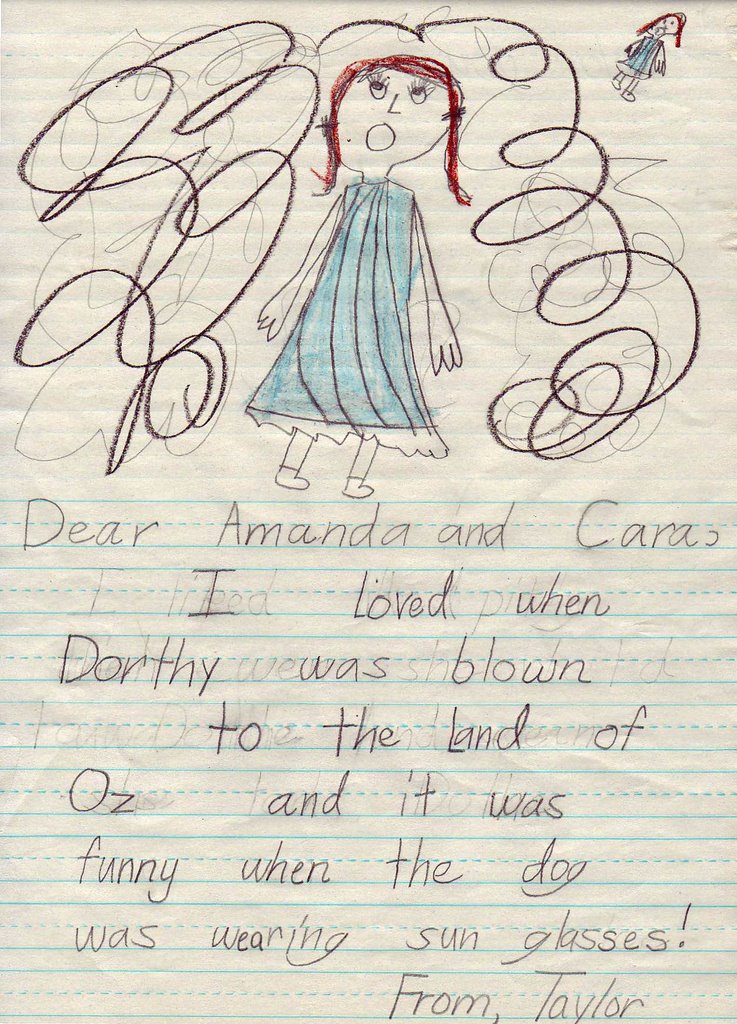 Dear Amanda and Cara,
I loved when
Dorthy was blown
to the Land of
Oz and it was
funny when the dog
was wearing sun glasses!
From, Taylor